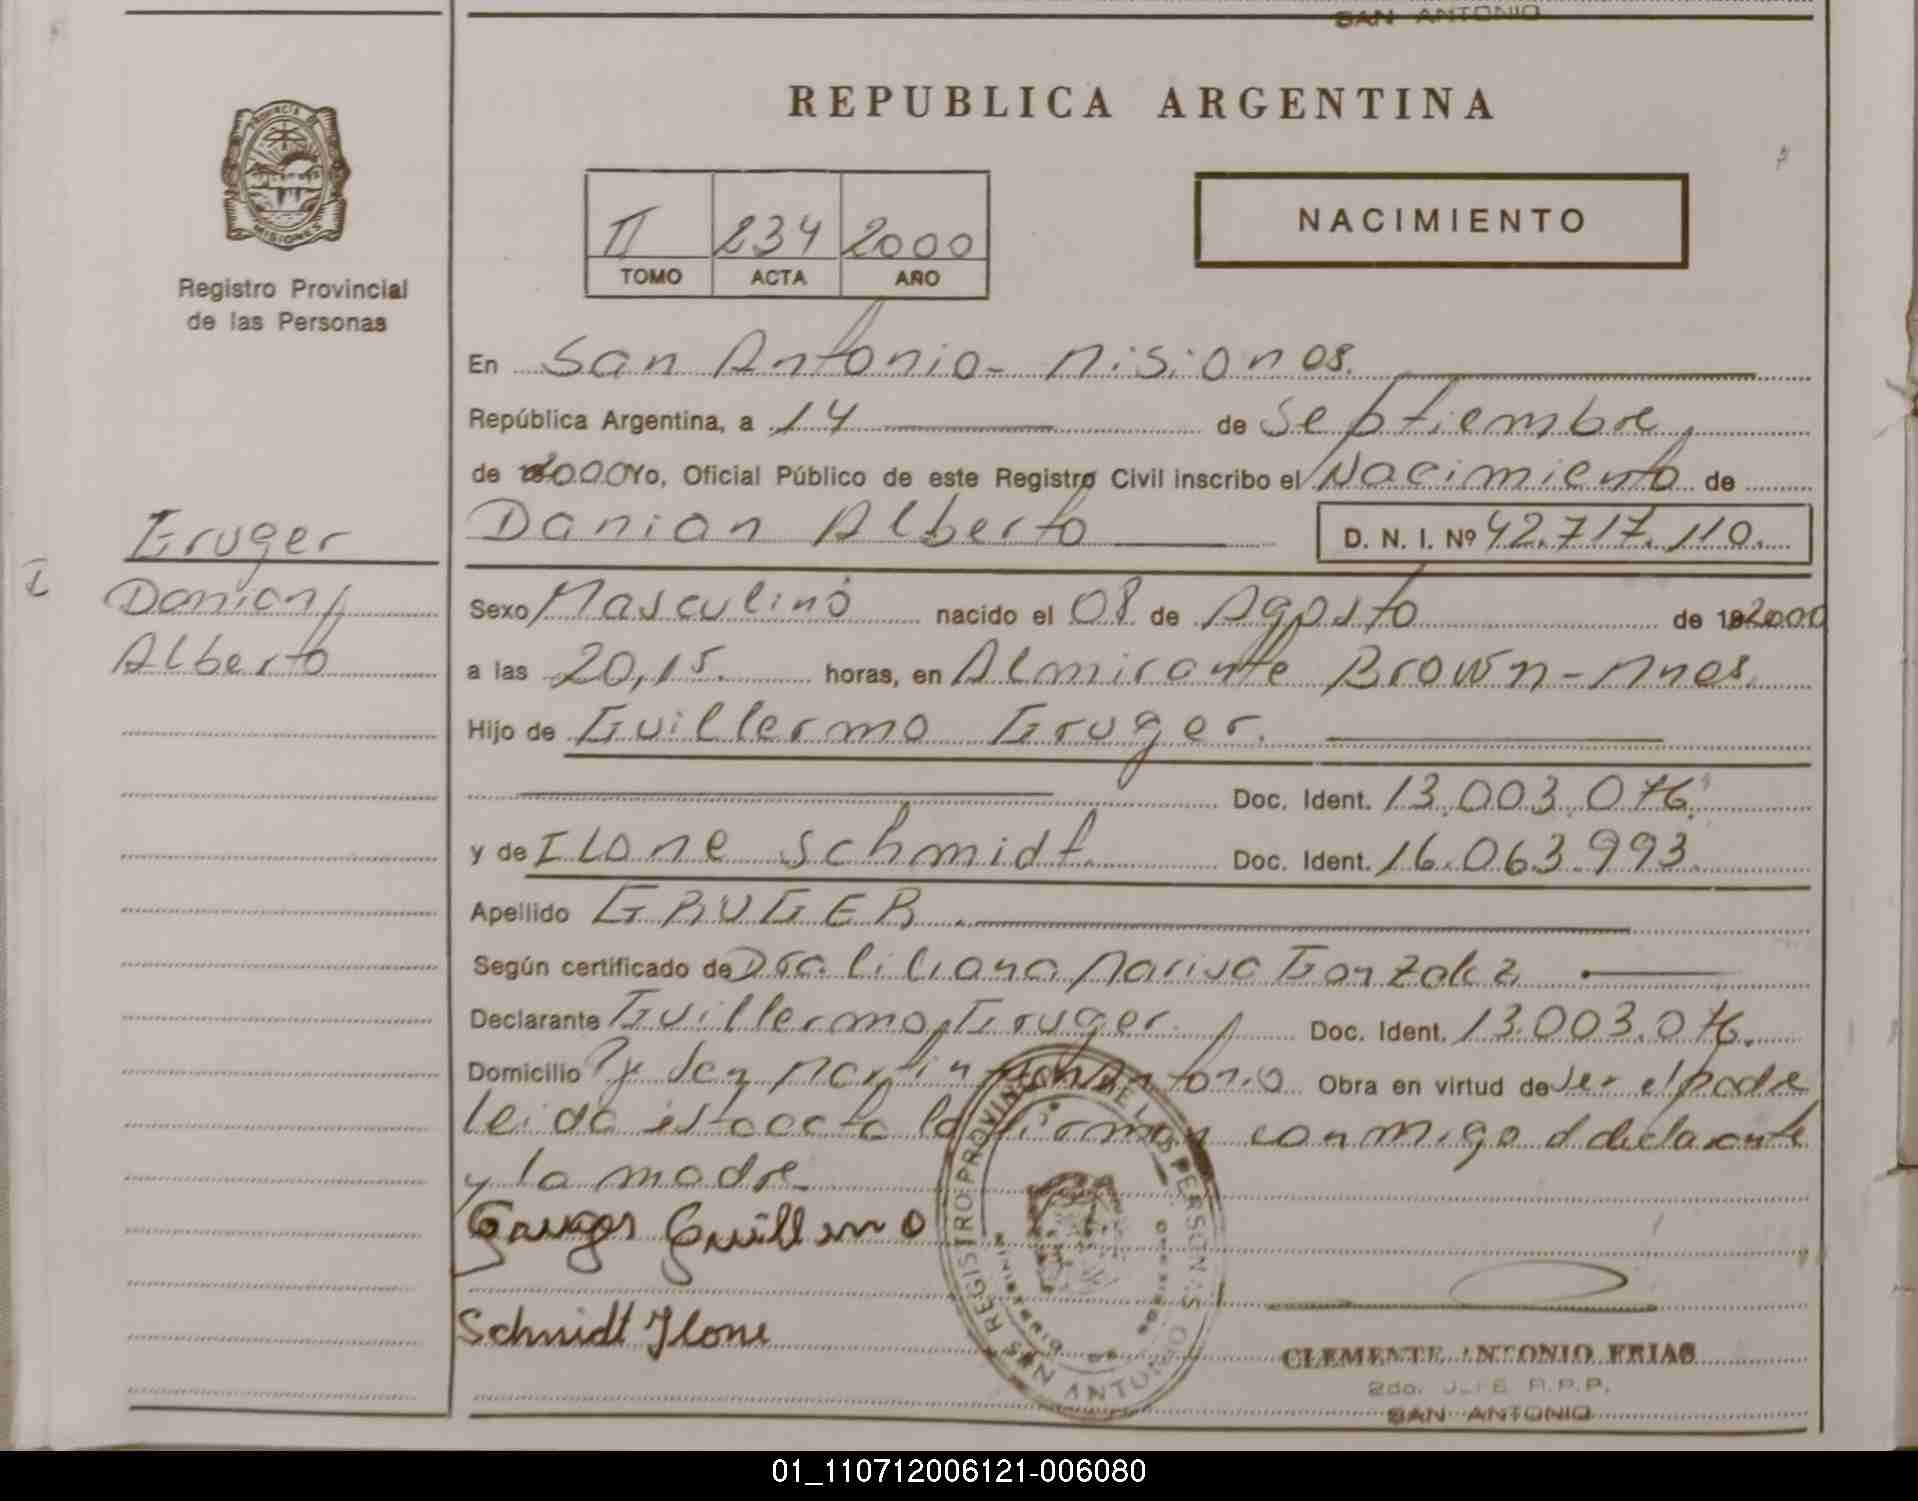 SAN ANTONIO
REPUBLICA ARGENTINA
PROVINCIA DE
MISIONES
Registro Provincial
de las Personas
II 234 2000
TOMO ACTA AÑO
NACIMIENTO
En San Antonio - Misiones.
República Argentina, a 14 de Septiembre
de 2000 Yo, Oficial Público de este Registro Civil inscribo el Nacimiento de
Gruger
Danian
Alberto
Danian Alberto D. N. I. Nº 42.717.110.
Sexo Masculino nacido el 08 de Agosto de 2000
a las 20,15. horas, en Almirante Brown - Mnes.
Hijo de Guillermo Gruger.
Doc. Ident. 13.003.076.
y de Ilone Schmidt Doc. Ident. 16.063.993.
Apellido GRUGER
Según certificado de Dra. Liliana Marisa Gonzalez
Declarante Guillermo Gruger. Doc. Ident. 13.003.076.
Domicilio San Martin San Antonio Obra en virtud de Ser el padre
leida esta acta la firman conmigo el declarante
y la madre
Gruger Guillermo
Schmidt Ilone
REGISTRO PROVINCIAL DE LAS PERSONAS
MINISTERIO DE GOBIERNO
SAN ANTONIO
CLEMENTE ANTONIO FRIAS
2do. JEFE R.P.P.
SAN ANTONIO
01_110712006121-006080